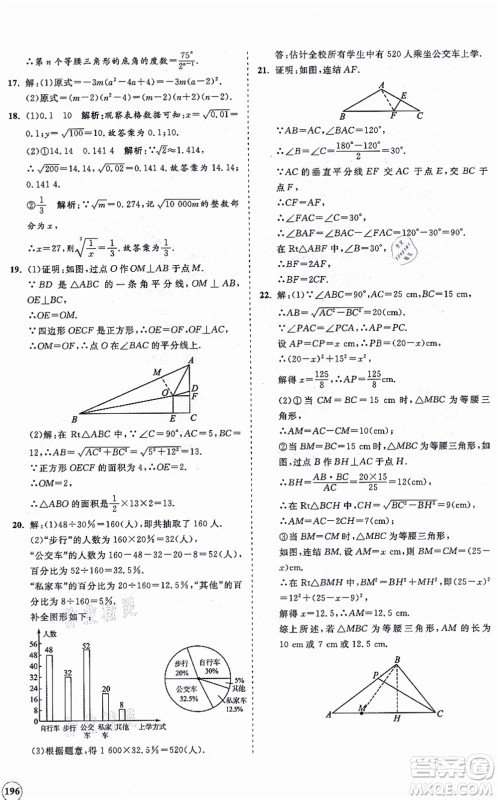 ∴第 n 个等腰三角形的底角的度数=75°/2ⁿ⁻¹.
17. 解:(1)原式=-3m(a²-4a+4)=-3m(a-2)².
(2)原式=-2(4a²-b²)=-2(2a+b)(2a-b).
18. (1)0.1 10 解析:观察表格数据可知:x=√0.01=
0.1;y=√100=10,故答案为:0.1,10.
(2)①14.14 0.141 4 解析:∵√2≈1.414,
∴√200=14.14,√0.02=0.141 4,故答案为:14.14,
0.141 4.
②1/3 解析:故答案为:
∴x=27,∛(1/x)=1/3.故答案为1/3.
19. (1)证明:如图,过点 O 作 OM⊥AB.
∵BD 是△ABC 的一条角平分线,∴OM=
OE.
∵四边形 OECF 是正方形,∴OE=OF,∴OF=
OM,∴点 O 在∠BAC 的平分线上.
A
M
O
D
F
B
E
C
(2)解:在 Rt△ABC 中,∵∠C=90°,AC=5,
BC=12,∴AB=√(AC²+BC²)=√(5²+12²)=13.
∴OE=OM=2.
∴△ABO 的面积=1/2×13×2=13.
20. 解:(1)48÷30%=160(人),即共抽取了 160 人.
(2)“步行”的人数为 160×20%=32(人),
“公交车”的人数为 160-48-32-20-8=52(人),
百分比为 52÷160=32.5%.
“私家车”的百分比为 20÷160=12.5%,“其他”的
百分比为 8÷160=5%.
补全图形如下:
人数
56
48
40
32
24
16
8
0
48
32
52
20
8
自行车 步行 公交车 私家车 其他 上学方式
步行
20%
自行车
30%
5%
其他
公交车
32.5%
私家车
12.5%
(3)根据题意,得 1 600×32.5%=520(人).
196
答:估计全校所有学生中有 520 人乘坐公交车上学.
21. 证明:如图,连结 AF.
A
E
B
F
C
∵AB=AC,∠BAC=120°,
∴∠B=∠C=(180°-120°)/2=30°.
∵AC 的垂直平分线 EF 交 AC 于点 E,交 BC 于
点 F,
∴CF=AF,
∴∠FAC=∠C=30°,
∴∠BAF=∠BAC-∠FAC=120°-30°=90°.
在 Rt△ABF 中,∠B=30°,
∴BF=2AF,
∴BF=2CF.
22. 解:(1)∵∠ABC=90°,AC=25 cm,BC=15 cm,
∴AB=√(AC²-BC²)=20(cm).
∵∠PAC=∠PCA,∴AP=PC.
设 AP=PC=x cm,∴PB=(20-x)cm,
∴(20-x)²+15²=x²,
解得 x=125/8,∴AP=125/8 cm.
(2)①当 CM=BC=15 cm 时,△MBC 为等腰三
角形,
∴AM=AC-CM=10 cm.
②当 BM=BC=15 cm 时,△MBC 为等腰三角形,
如图,过点 B 作 BH⊥AC 于点 H,
∴BH=AB·BC/AC=20×15/25=12(cm).
在 Rt△BCH 中,CH=√(BC²-BH²)=9 cm,
∴CM=2CH=18 cm,
∴AM=AC-CM=7 cm.
③当 BM=CM 时,△MBC 为等腰三角形,
设 BM=CM=x cm,则 MH=(x-9)cm.
在 Rt△BHM 中,BH²+HM²=BM²,
∴12²+(x-9)²=x²,
解得 x=12.5,∴AM=12.5 cm.
综上所述,若△MBC 为等腰三角形,AM=10 cm
或 7 cm 或 12.5 cm.
B
P
A
M
H
C